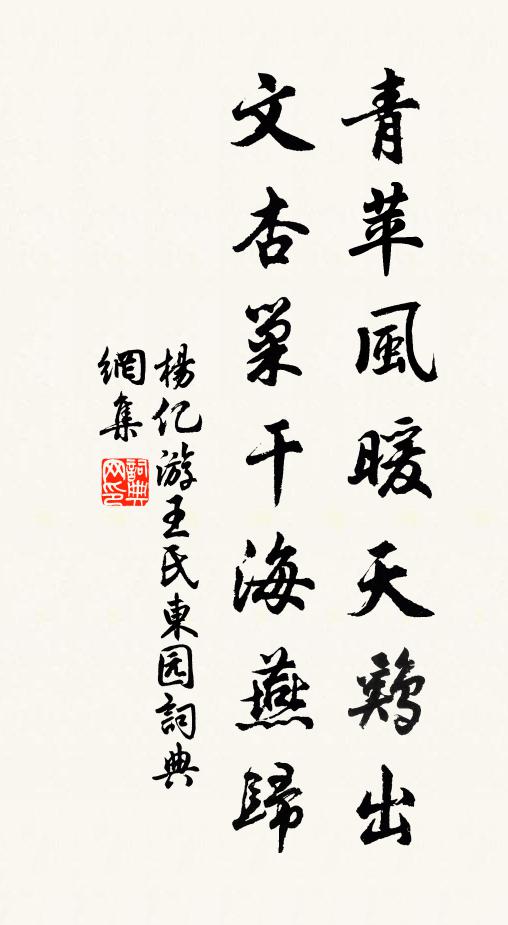 青苹風暖天鷄出
文杏巢干海燕歸
楊亿游王氏東园詞典
網集
詞典
网印